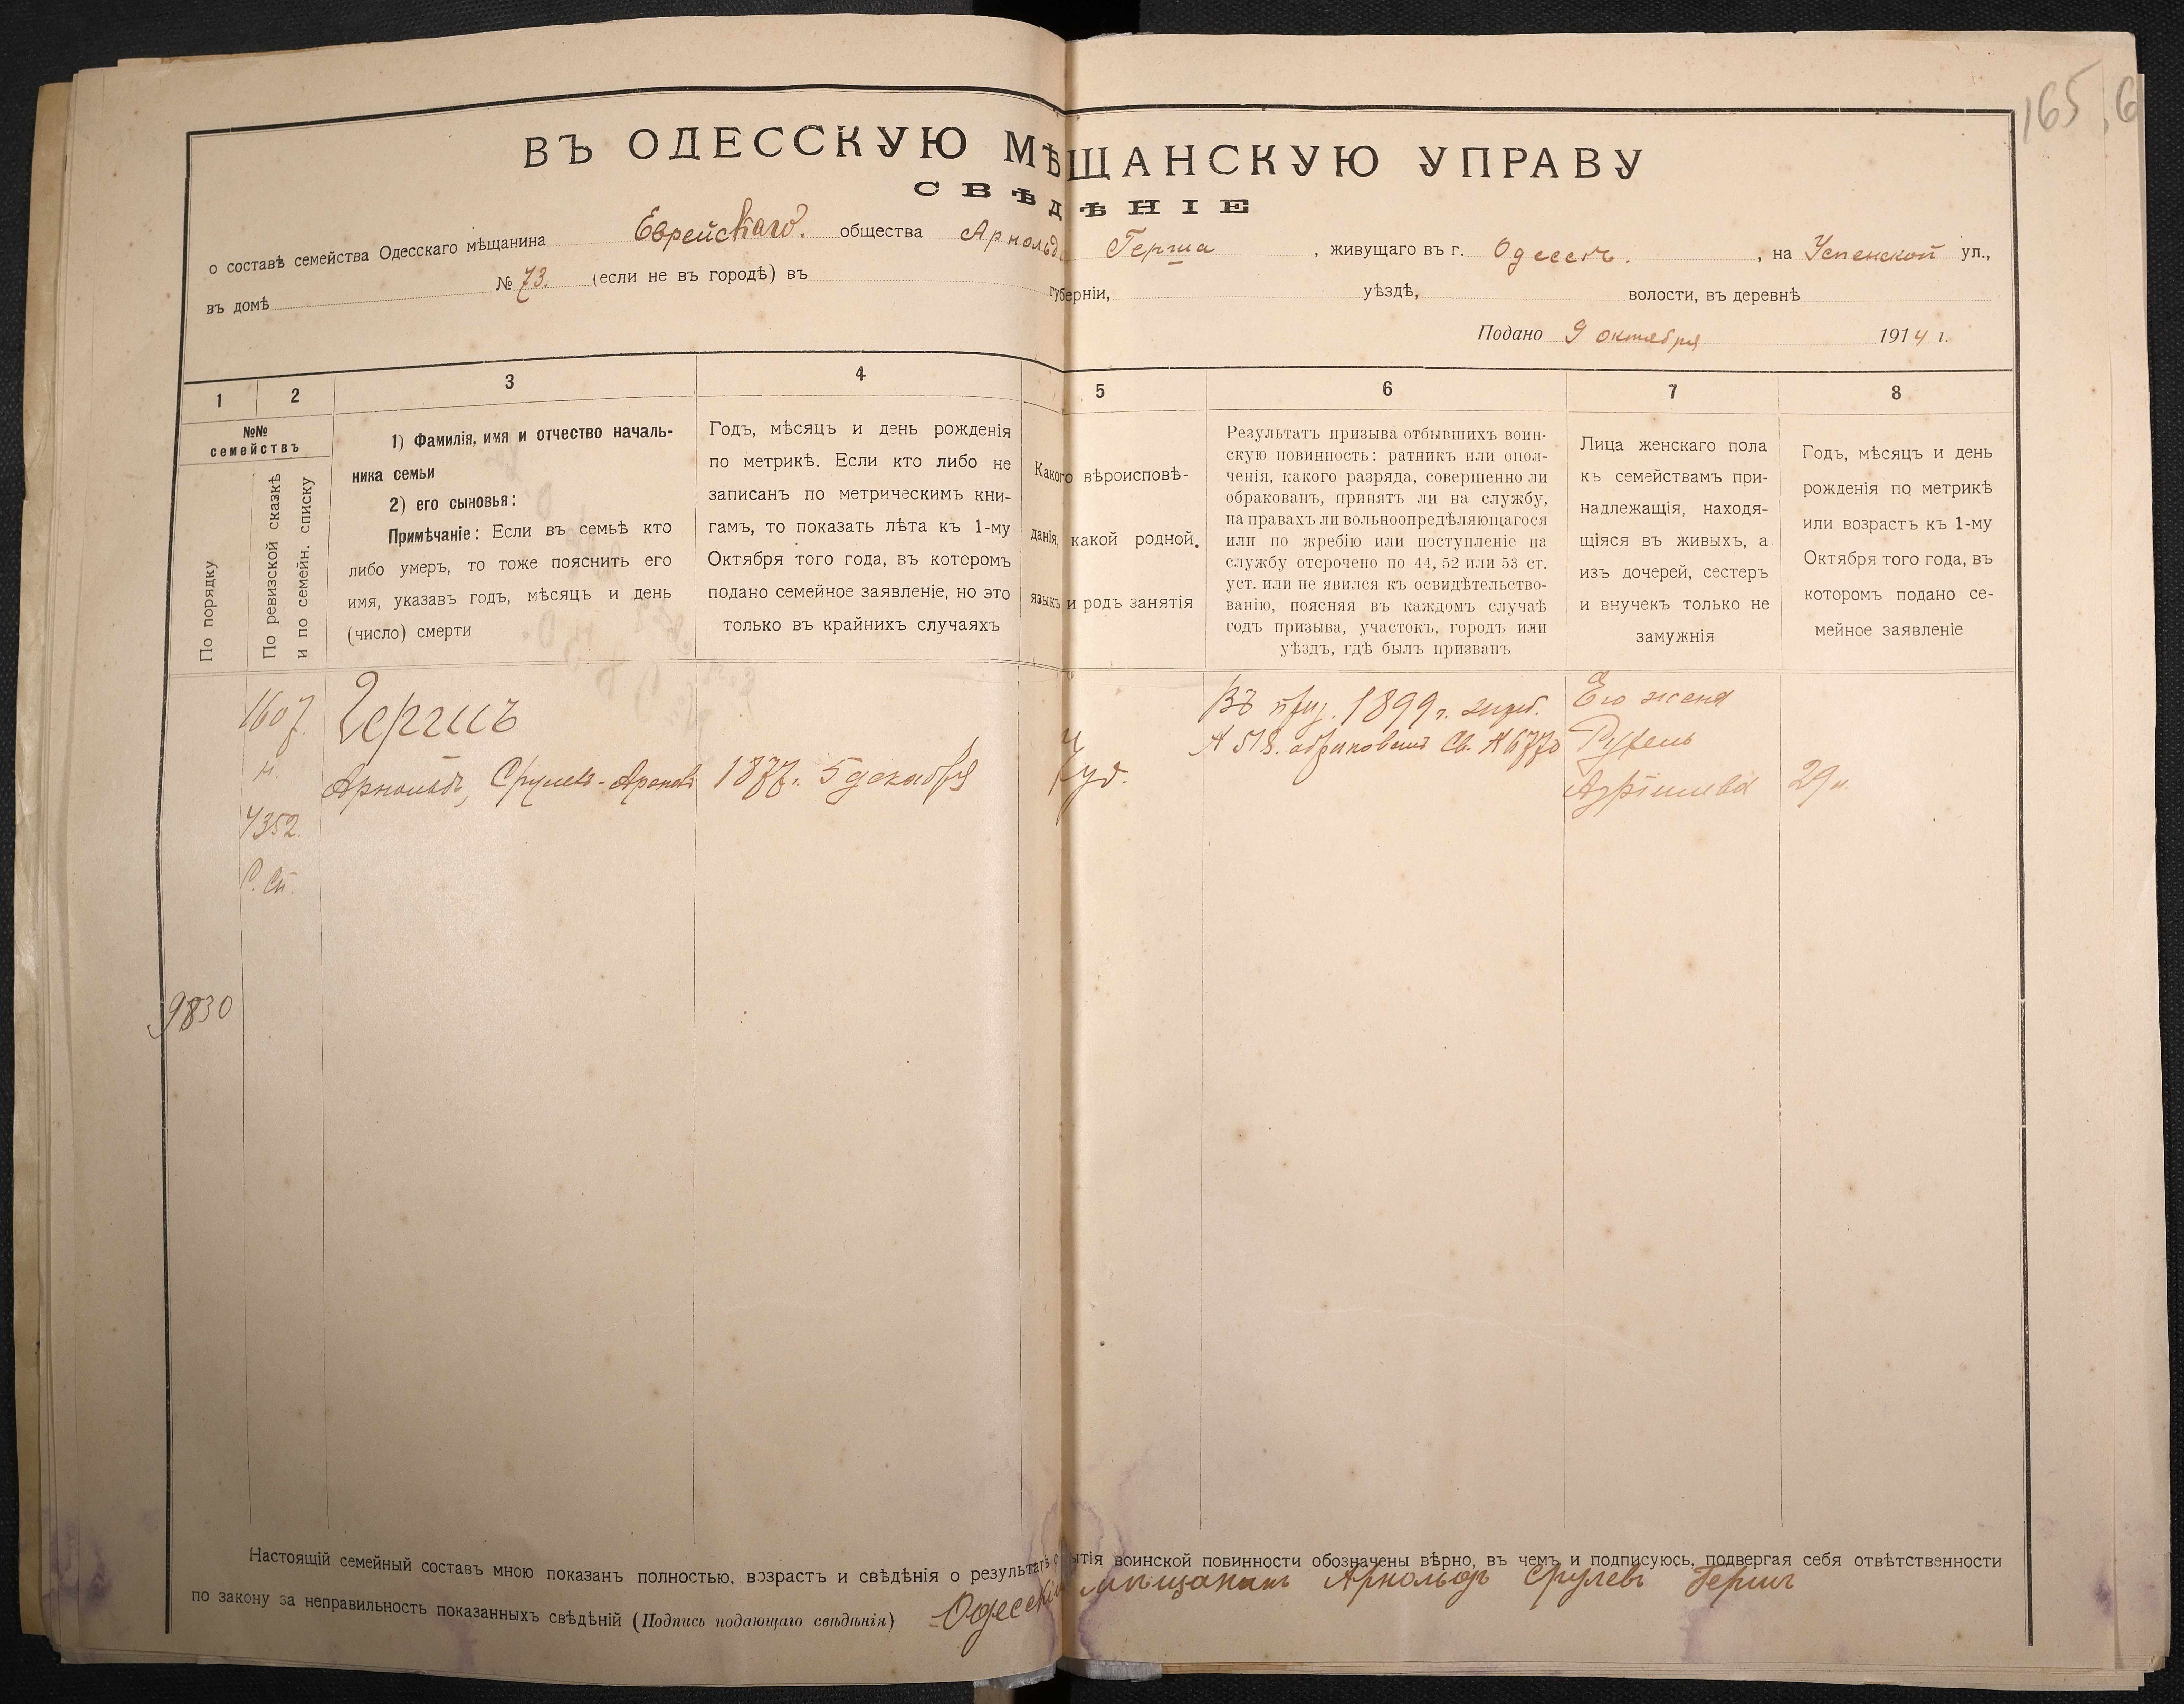 165
ВЪ ОДЕССКУЮ МѢЩАНСКУЮ УПРАВУ
СВѢДѢНІЕ
о составѣ семейства Одесскаго мѣщанина Еврейскаго. общества Арнольда Герша , живущаго въ г. Одессѣ. , на Успенской ул.,
въ домѣ № 73. (если не въ городѣ) въ губерніи, уѣздѣ, волости, въ деревнѣ
Подано 9 октября 1914 г.
1 2 3 4 5 6 7 8
№№ семействъ
По порядку
По ревизской сказкѣ
и по семейн. списку
1) Фамилія, имя и отчество началь-
ника семьи
2) его сыновья:
Примѣчаніе: Если въ семьѣ кто
либо умеръ, то тоже пояснить его
имя, указавъ годъ, мѣсяцъ и день
(число) смерти
Годъ, мѣсяцъ и день рожденія
по метрикѣ. Если кто либо не
записанъ по метрическимъ кни-
гамъ, то показать лѣта къ 1-му
Октября того года, въ которомъ
подано семейное заявленіе, но это
только въ крайнихъ случаяхъ
Какого вѣроисповѣ-
данія, какой родной
языкъ и родъ занятія
Результатъ призыва отбывшихъ воин-
скую повинность: ратникъ или опол-
ченія, какого разряда, совершенно ли
обракованъ, принятъ ли на службу,
на правахъ ли вольноопредѣляющагося
или по жребію или поступленіе на
службу отсрочено по 44, 52 или 53 ст.
уст. или не явился къ освидѣтельство-
ванію, поясняя въ каждомъ случаѣ
годъ призыва, участокъ, городъ или
уѣздъ, гдѣ былъ призванъ
Лица женскаго пола
къ семействамъ при-
надлежащія, находя-
щіяся въ живыхъ, а
изъ дочерей, сестеръ
и внучекъ только не
замужнія
Годъ, мѣсяцъ и день
рожденія по метрикѣ
или возрастъ къ 1-му
Октября того года, въ
которомъ подано се-
мейное заявленіе
1607
н.
4352.
С. Сп.
9830
Гершъ
Арнольдъ, Срулевъ-Ароновъ
1877 г. 5 декабря
Іуд.
Въ приз. 1899 г. жерб.
№ 518. обракованъ Св. №
Его жена
Рухель
29 л.
Настоящій семейный составъ мною показанъ полностью, возрастъ и свѣдѣнія о результатѣ отбытія воинской повинности обозначены вѣрно, въ чемъ и подписуюсь, подвергая себя отвѣтственности
по закону за неправильность показанныхъ свѣдѣній (Подпись подающаго свѣдѣнія) Одесскій мѣщанинъ Арнольдъ Срулевъ Гершъ